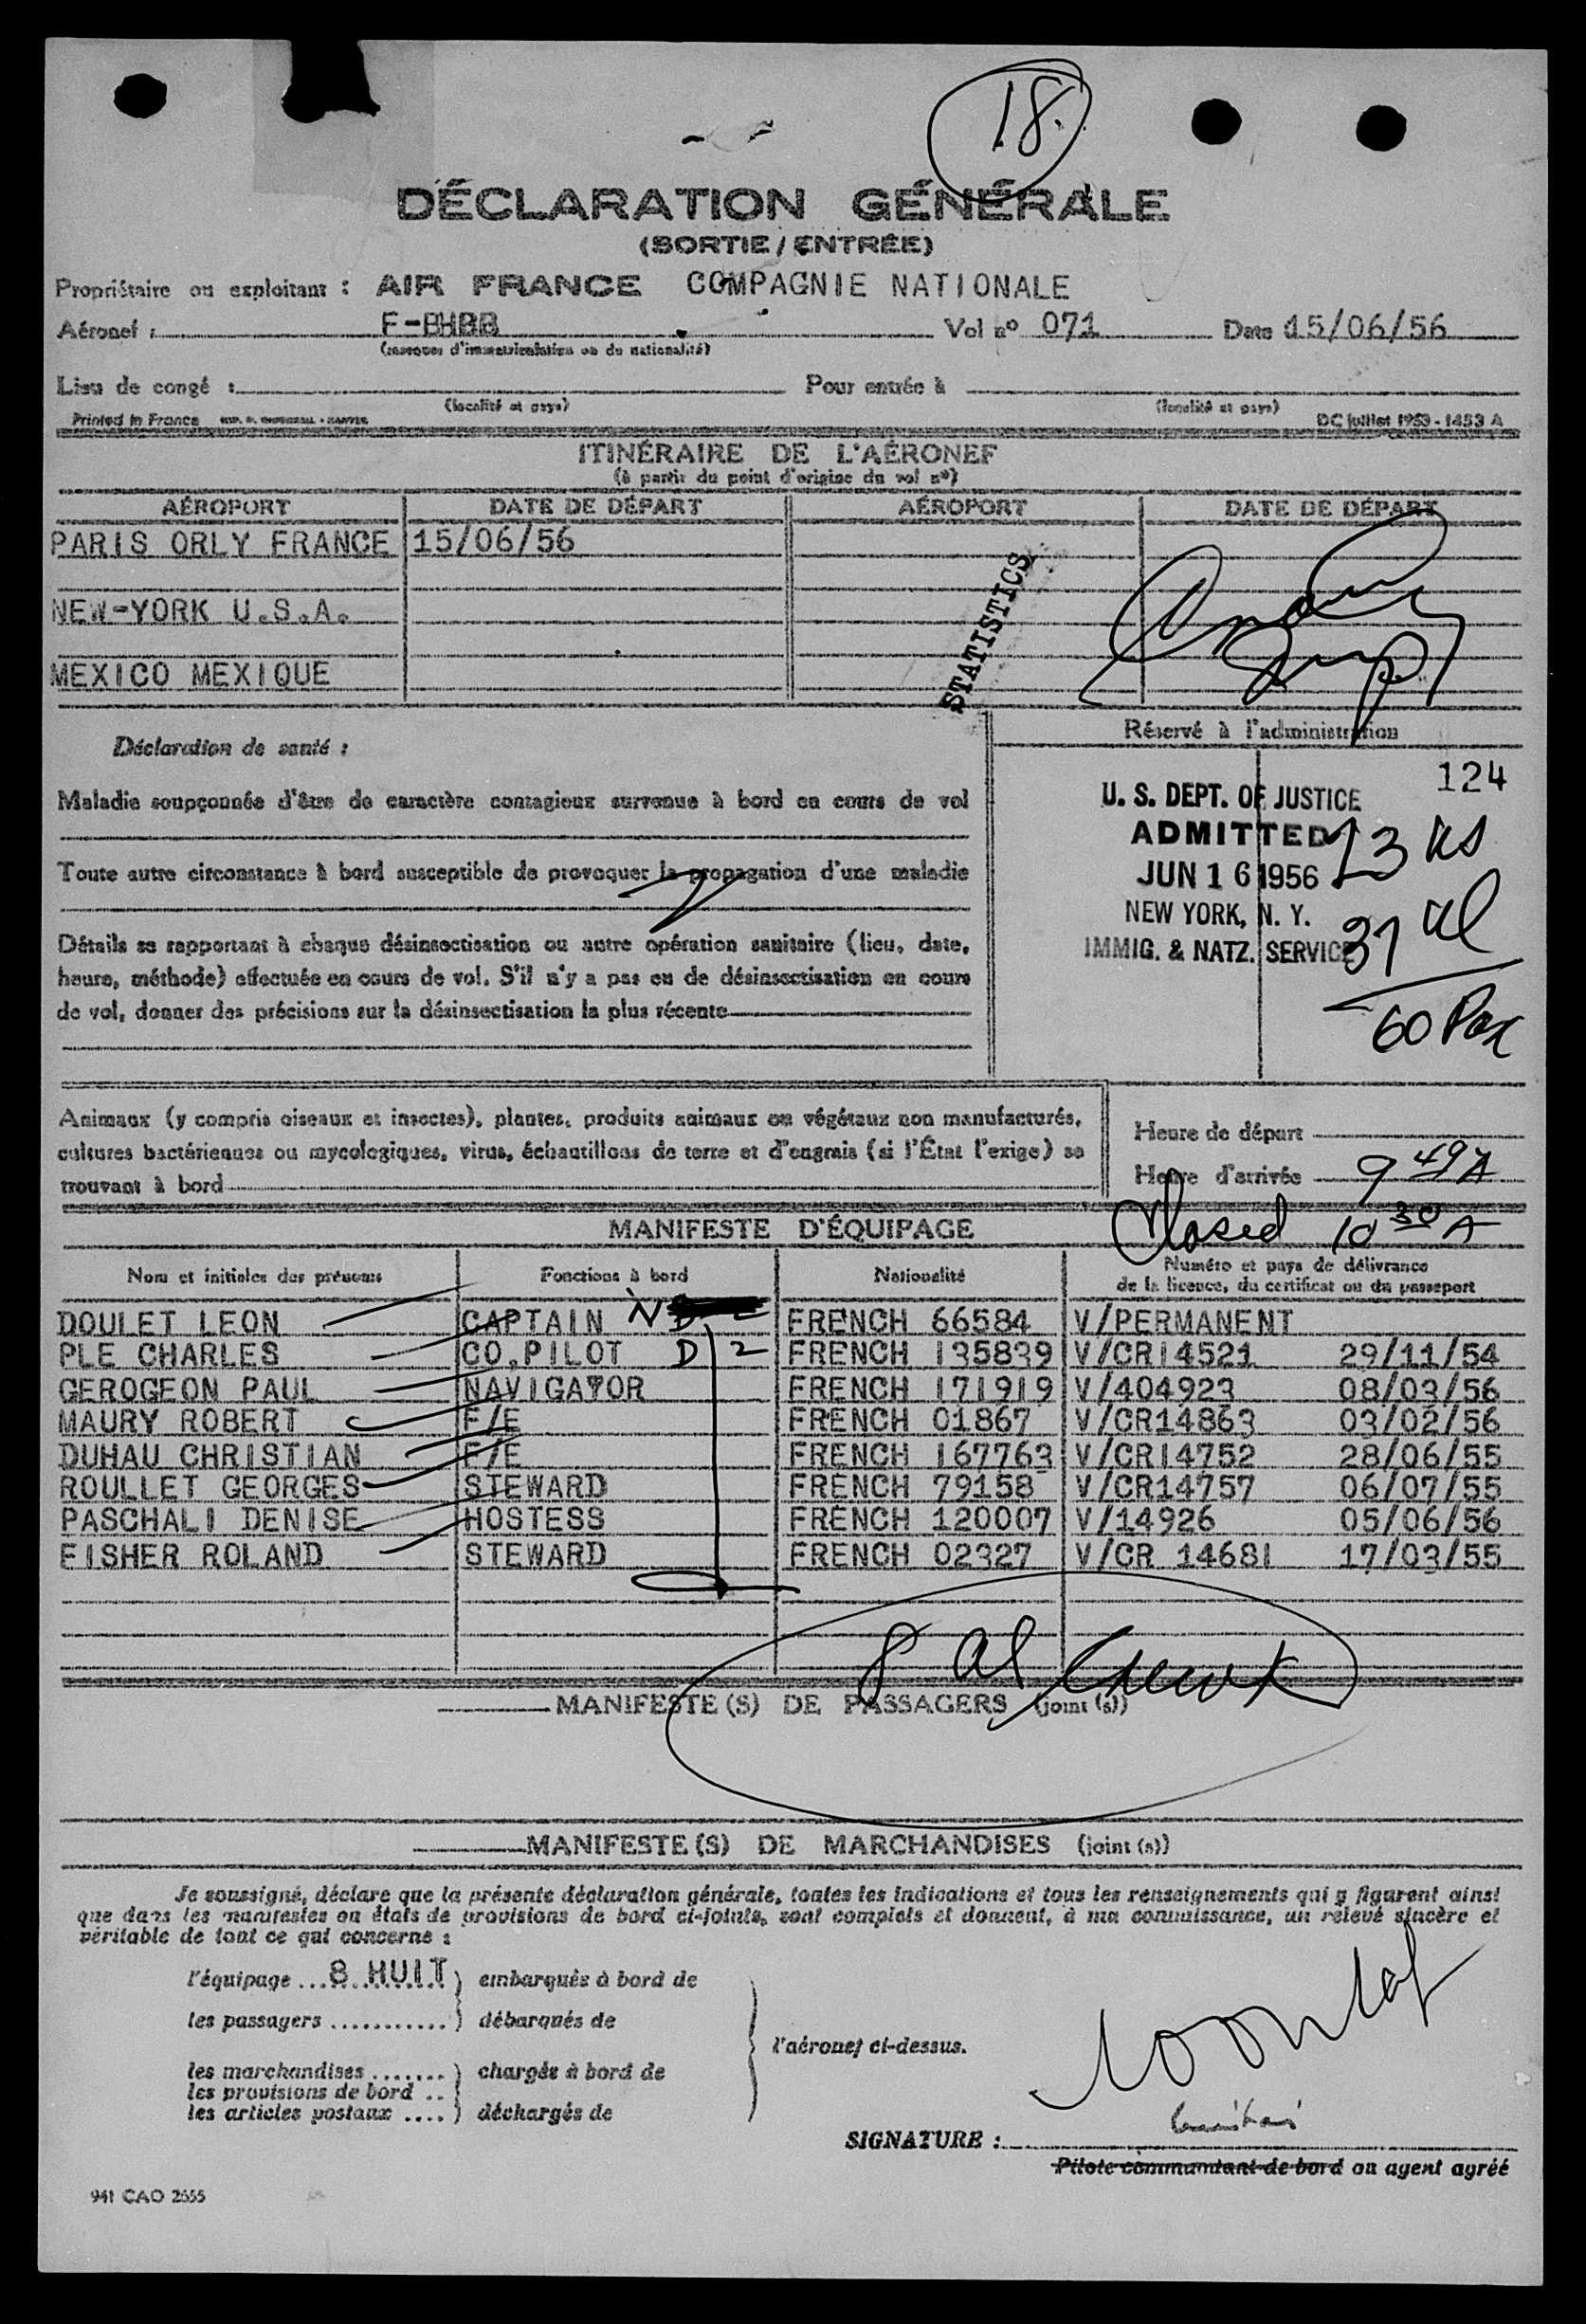 18.
DÉCLARATION GÉNÉRALE
(SORTIE / ENTRÉE)
Propriétaire ou exploitant : AIR FRANCE COMPAGNIE NATIONALE
Aéronef : F-BHBB Vol nº 071 Date 15/06/56
(marques d'immatriculation ou de nationalité)
Lieu de congé : Pour entrée à
(localité et pays) (localité et pays)
Printed in France DC juillet 1953 - 1453 A
ITINÉRAIRE DE L'AÉRONEF
(à partir du point d'origine du vol nº)
AÉROPORT DATE DE DÉPART AÉROPORT DATE DE DÉPART
PARIS ORLY FRANCE 15/06/56
NEW-YORK U.S.A.
MEXICO MEXIQUE
STATISTICS
Déclaration de santé :
Réservé à l'administration
124
Maladie soupçonnée d'être de caractère contagieux survenue à bord en cours de vol
Toute autre circonstance à bord susceptible de provoquer la propagation d'une maladie
Détails se rapportant à chaque désinsectisation ou autre opération sanitaire (lieu, date,
heure, méthode) effectuée en cours de vol. S'il n'y a pas eu de désinsectisation en cours
de vol, donner des précisions sur la désinsectisation la plus récente
U. S. DEPT. OF JUSTICE
ADMITTED
JUN 16 1956
NEW YORK, N. Y.
IMMIG. & NATZ. SERVICE
23 us
37 al
60 Pax
Animaux (y compris oiseaux et insectes), plantes, produits animaux ou végétaux non manufacturés,
cultures bactériennes ou mycologiques, virus, échantillons de terre et d'engrais (si l'État l'exige) se
trouvant à bord
Heure de départ
Heure d'arrivée 9 49 A
Closed 10 30 A
MANIFESTE D'ÉQUIPAGE
Nom et initiales des prénoms Fonctions à bord Nationalité Numéro et pays de délivrance
de la licence, du certificat ou du passeport
DOULET LEON CAPTAIN FRENCH 66584 V/PERMANENT
PLE CHARLES CO.PILOT D 2 FRENCH 135839 V/CR14521 29/11/54
GEROGEON PAUL NAVIGATOR FRENCH 171919 V/404923 08/03/56
MAURY ROBERT F/E FRENCH 01867 V/CR14863 03/02/56
DUHAU CHRISTIAN F/E FRENCH 167763 V/CR14752 28/06/55
ROULLET GEORGES STEWARD FRENCH 79158 V/CR14757 06/07/55
PASCHALI DENISE HOSTESS FRENCH 120007 V/14926 05/06/56
FISHER ROLAND STEWARD FRENCH 02327 V/CR 14681 17/03/55
8 al Crew
MANIFESTE (S) DE PASSAGERS (joint (s))
MANIFESTE (S) DE MARCHANDISES (joint (s))
Je soussigné, déclare que la présente déclaration générale, toutes les indications et tous les renseignements qui y figurent ainsi
que dans les manifestes ou états de provisions de bord ci-joints, sont complets et donnent, à ma connaissance, un relevé sincère et
véritable de tout ce qui concerne :
l'équipage ... 8 HUIT ) embarqués à bord de
les passagers ........... ) débarqués de
l'aéronef ci-dessus.
les marchandises ....... ) chargés à bord de
les provisions de bord ..
les articles postaux .... ) déchargés de
SIGNATURE :
Pilote commandant de bord ou agent agréé
941 CAO 2555